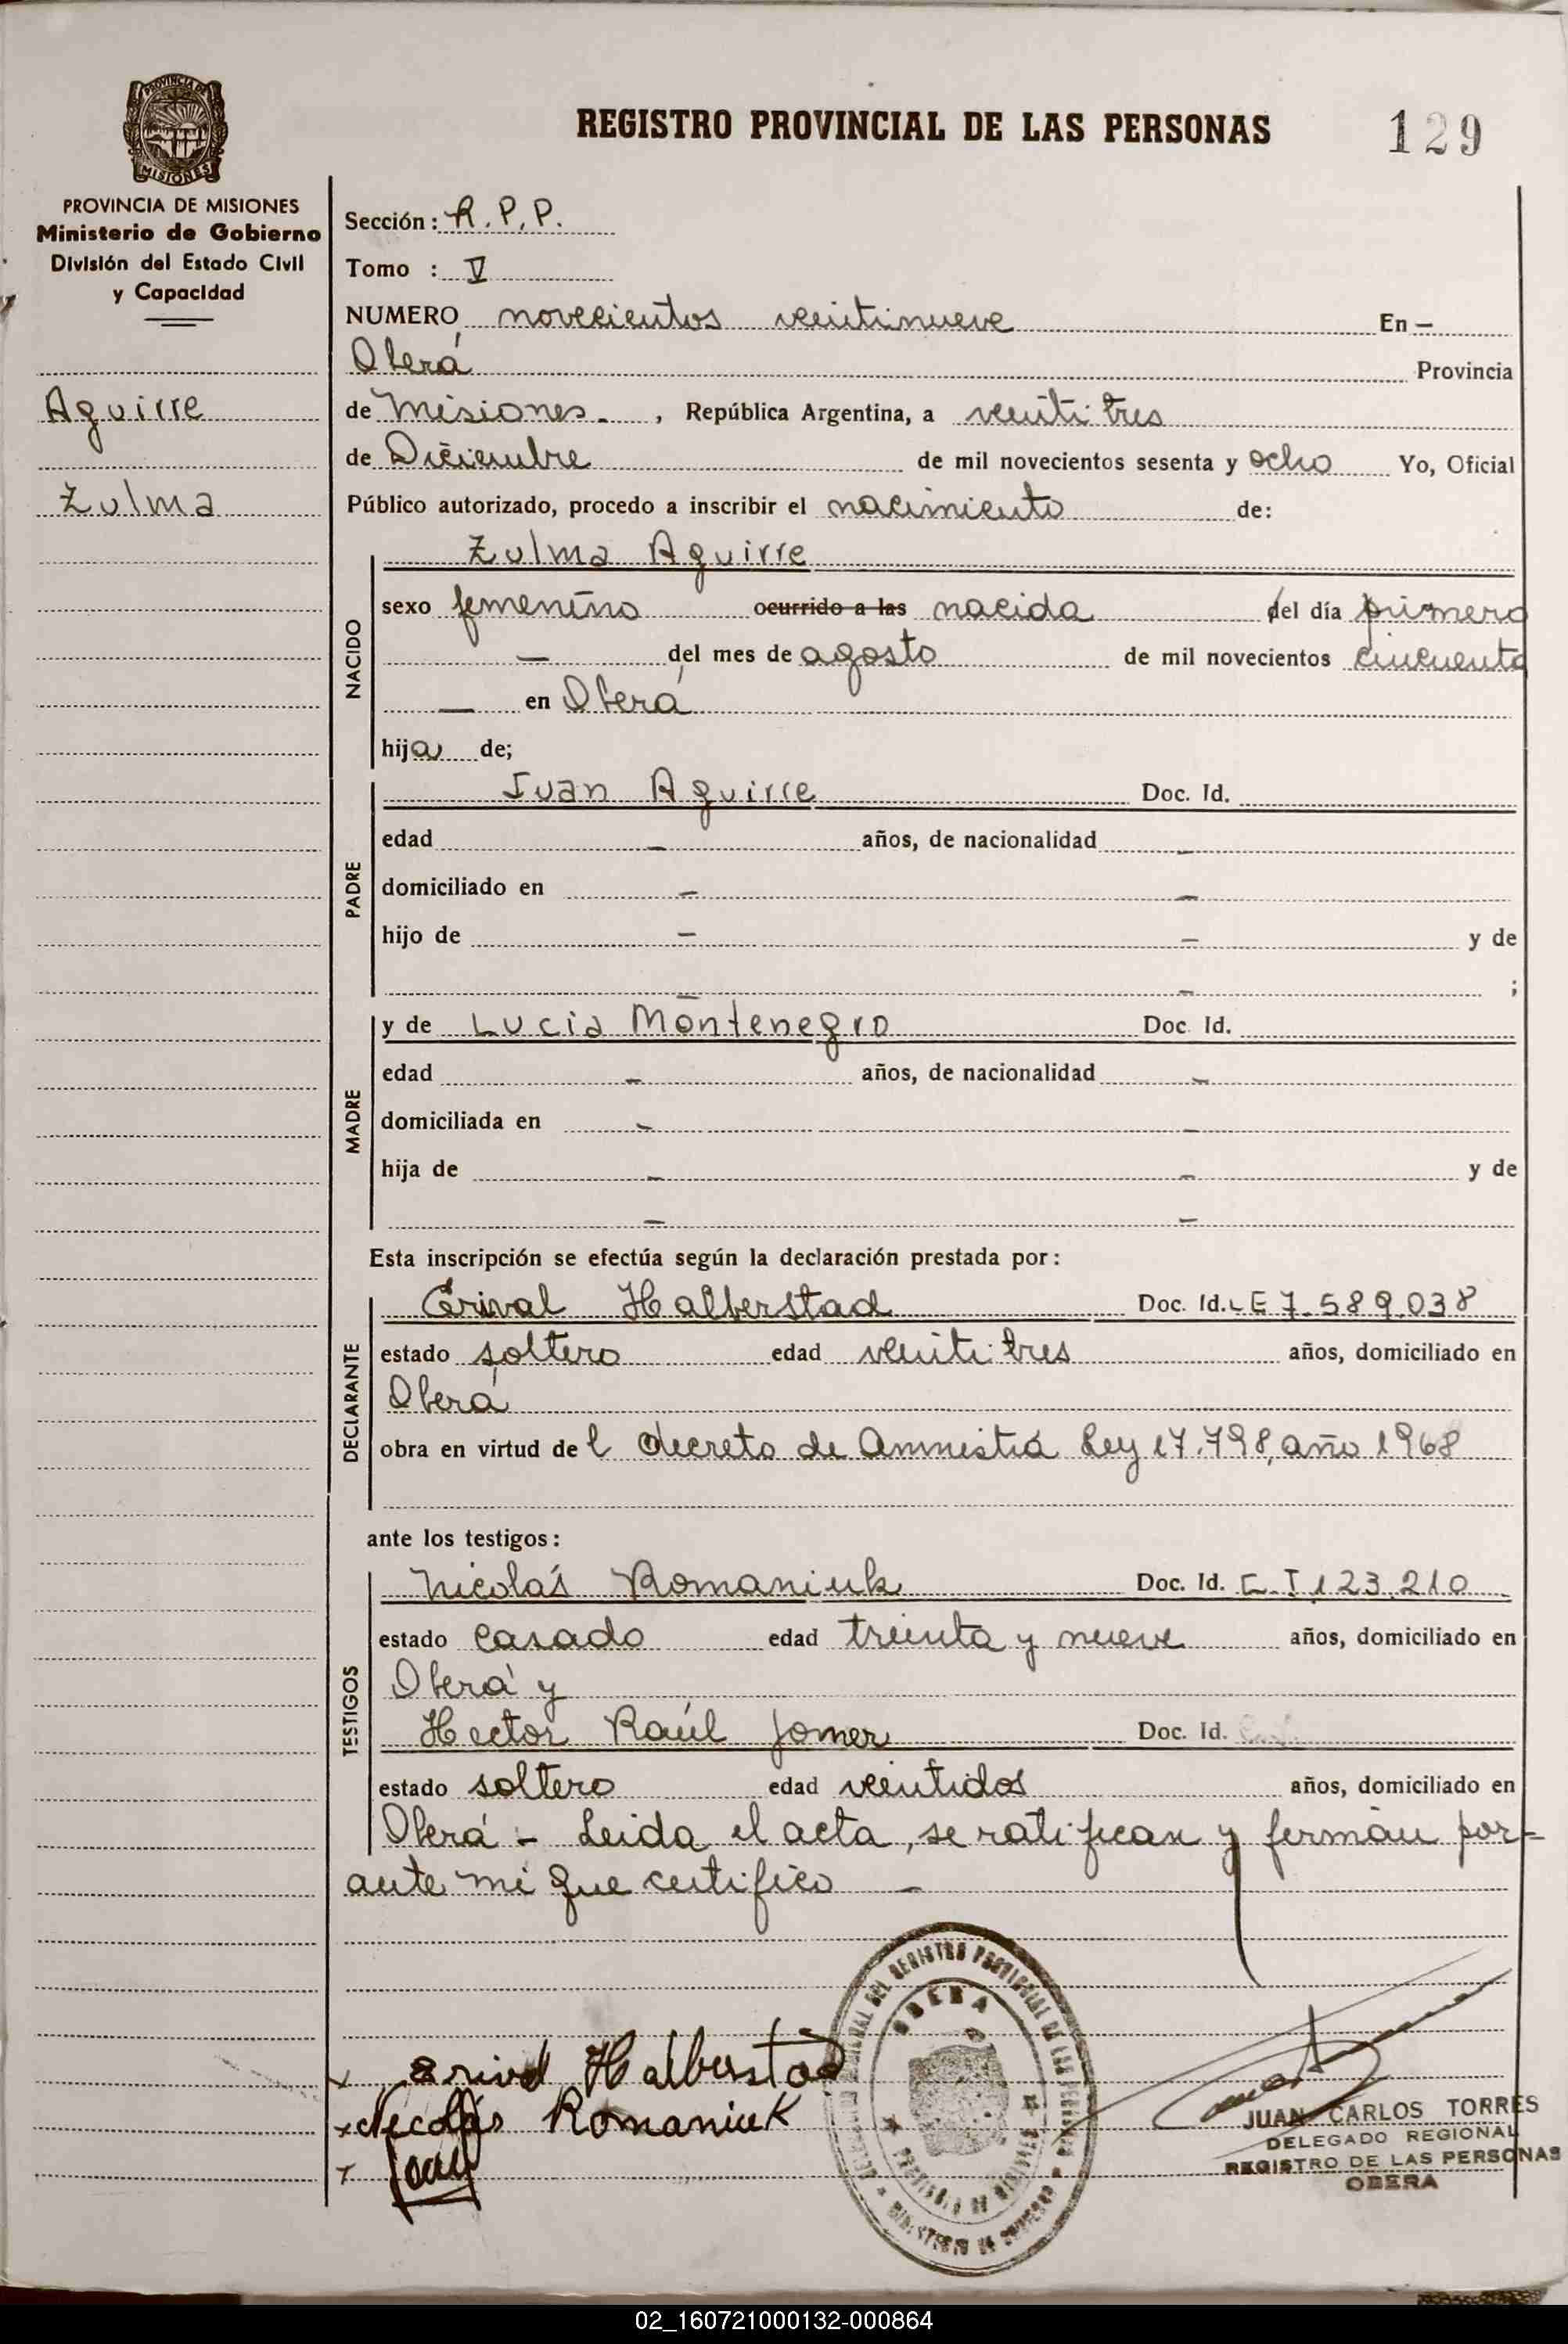 REGISTRO PROVINCIAL DE LAS PERSONAS 129
PROVINCIA DE MISIONES
MISIONES
PROVINCIA DE MISIONES
Ministerio de Gobierno
División del Estado Civil
y Capacidad
Aguirre
Zulma
Sección: R.P.P.
Tomo : V
NUMERO novecientos veintinueve En —
Oberá Provincia
de Misiones , República Argentina, a veintitres
de Diciembre de mil novecientos sesenta y ocho Yo, Oficial
Público autorizado, procedo a inscribir el nacimiento de:
NACIDO
Zulma Aguirre
sexo femenino ocurrido a las nacida del día primero
— del mes de agosto de mil novecientos cincuenta
— en Oberá
hija de;
PADRE
Juan Aguirre Doc. Id.
edad — años, de nacionalidad —
domiciliado en — —
hijo de — — y de
— — ;
MADRE
y de Lucia Montenegro Doc. Id.
edad — años, de nacionalidad —
domiciliada en — —
hija de — — y de
— —
Esta inscripción se efectúa según la declaración prestada por:
DECLARANTE
Erival Halberstad Doc. Id. LE 7.589.038
estado soltero edad veintitres años, domiciliado en
Oberá
obra en virtud del decreto de Amnistia Ley 17.798, año 1968
ante los testigos:
TESTIGOS
Nicolás Romaniuk Doc. Id. C.I 123.210
estado casado edad treinta y nueve años, domiciliado en
Oberá y
Hector Raúl Jomer Doc. Id.
estado soltero edad veintidos años, domiciliado en
Oberá - Leida el acta, se ratifican y firman por-
ante mi que certifico —
Erival Halberstad
x Nicolás Romaniuk
OBERA
JUAN CARLOS TORRES
DELEGADO REGIONAL
REGISTRO DE LAS PERSONAS
OBERA
02_160721000132-000864